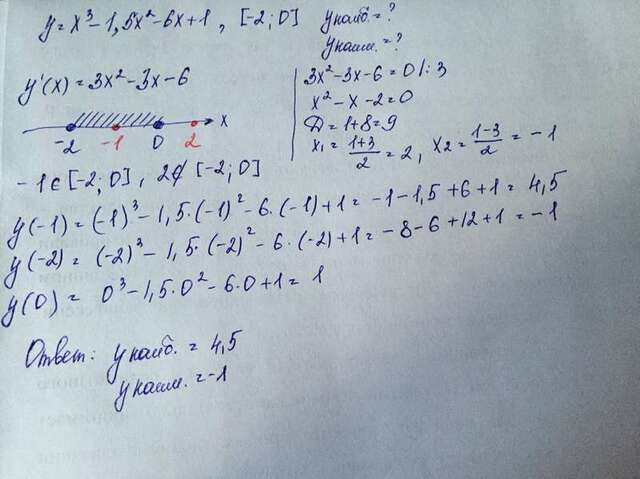 y = x³ - 1,5x² - 6x + 1 , [-2; 0] y наиб. = ?
y наим. = ?
y'(x) = 3x² - 3x - 6
3x² - 3x - 6 = 0 | : 3
x² - x - 2 = 0
D = 1 + 8 = 9
x₁ = (1+3)/2 = 2, x₂ = (1-3)/2 = -1
-2 -1 0 2 x
-1 ∈ [-2; 0] , 2 ∉ [-2; 0]
y(-1) = (-1)³ - 1,5·(-1)² - 6·(-1) + 1 = -1 - 1,5 + 6 + 1 = 4,5
y(-2) = (-2)³ - 1,5·(-2)² - 6·(-2) + 1 = -8 - 6 + 12 + 1 = -1
y(0) = 0³ - 1,5·0² - 6·0 + 1 = 1
Ответ: y наиб. = 4,5
y наим. = -1